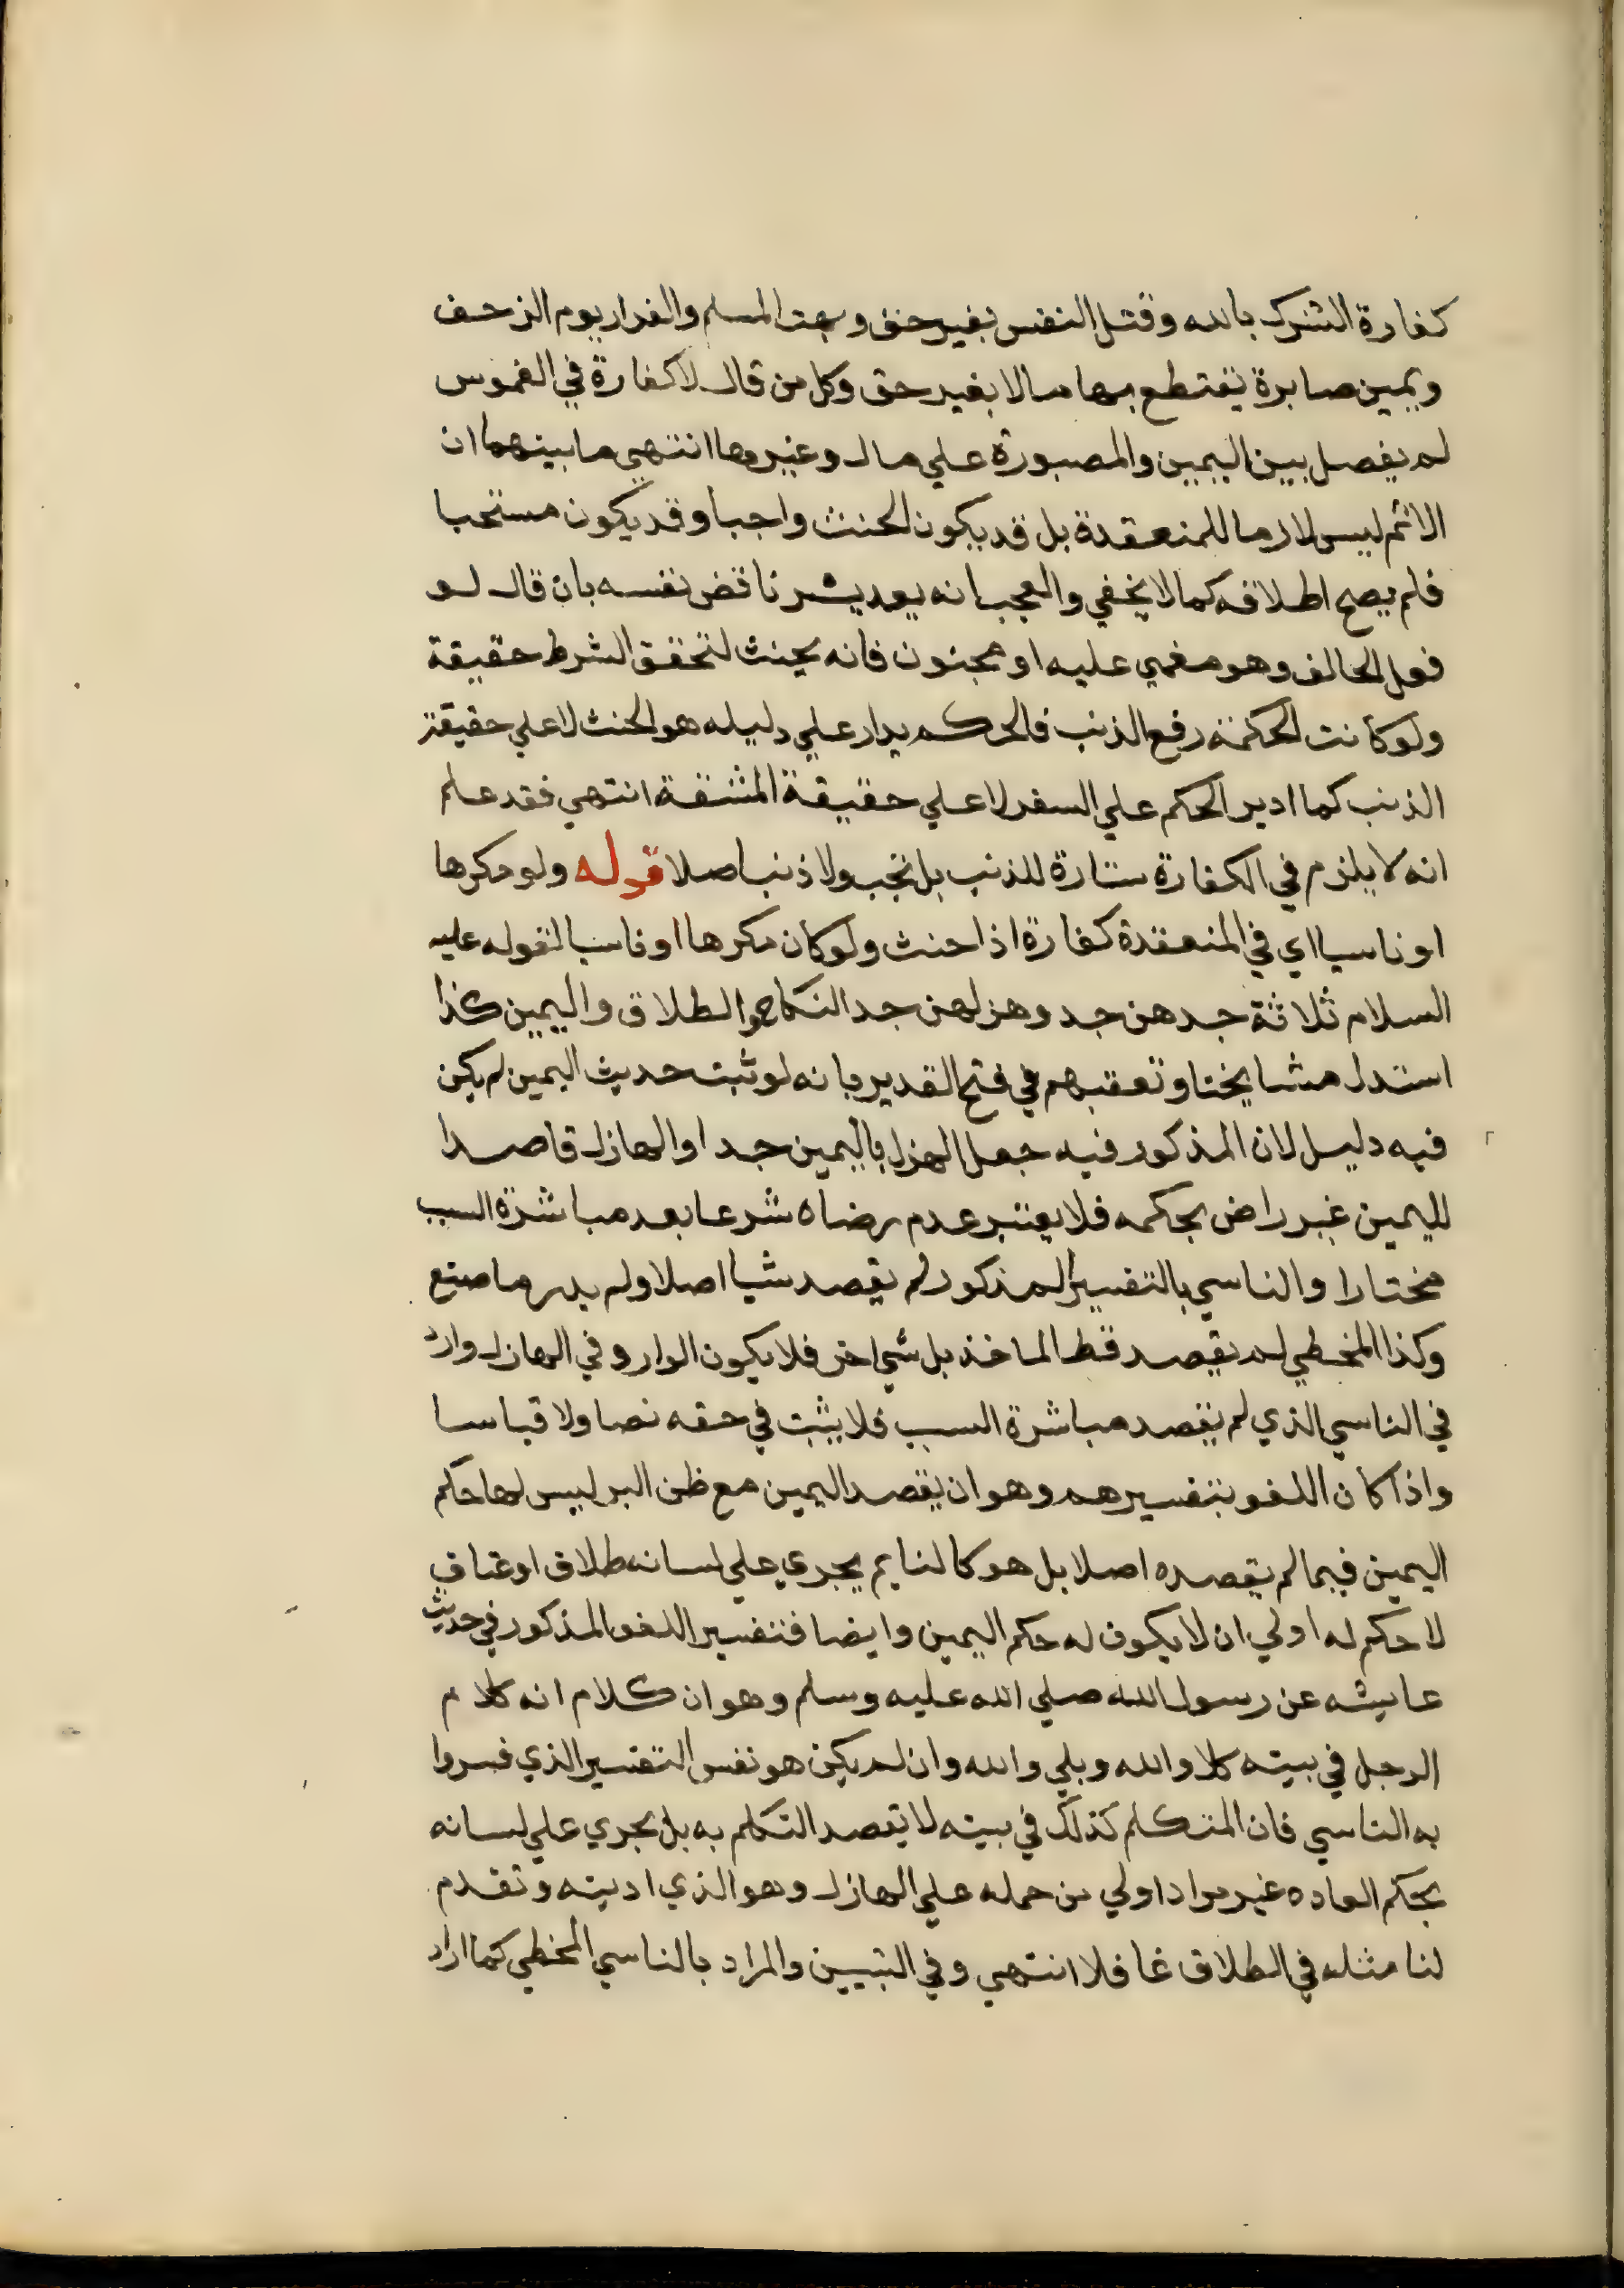 كفارة الشرك بالله وقتل النفس بغير حق وبهت المسلم والفرار يوم الزحف
ويمين صابرة يقتطع بها مالا بغير حق وكل من قال لا كفارة في الغموس
لم يفصل بين اليمين والمصبورة علي مال وغيرها انتهي ما بينهما ان
الاثم ليس لازما للمنعقدة بل قد يكون الحنث واجبا وقد يكون مستحبا
فلم يصح اطلاقه كما لا يخفي والعجب انه بعد يشر ناقض نفسه بان قال لو
فعل الحالف وهو مغمي عليه او مجنون فانه يحنث لتحقق الشرط حقيقة
ولو كانت الحكمة رفع الذنب فالحكم يدار علي دليله هو الحنث لا علي حقيقة
الذنب كما ادير الحكم علي السفر لا علي حقيقة المشقة انتهي فقد علم
انه لا يلزم في الكفارة ستارة للذنب بل تجب ولا ذنب اصلا قوله ولو مكرها
او ناسيا اي في المنعقدة كفارة اذا حنث ولو كان مكرها او ناسيا لقوله عليه
السلام ثلاثة جدهن جد وهزلهن جد النكاح والطلاق واليمين كذا
استدل مشايخنا وتعقبهم في فتح القدير بانه لو ثبت حديث اليمين لم يكن
فيه دليل لان المذكور فيه جعل الهزل باليمين جدا والهازل قاصدا
لليمين غير راض بحكمه فلا يعتبر عدم رضاه شرعا بعد مباشرة السبب
مختارا والناسي بالتفسير المذكور لم يقصد شيا اصلا ولم يدر ما صنع
وكذا المخطي لم يقصد قط الماخذ بل شي اخر فلا يكون الوارد في الهازل وارد
في الناسي الذي لم يقصد مباشرة السبب فلا يثبت في حقه نصا ولا قياسا
واذا كان اللغو بتفسيرهم وهو ان يقصد اليمين مع ظن البر ليس لها حكم
اليمين فيما لم يقصده اصلا بل هو كالنايم يجري علي لسانه طلاق او عتاق
لا حكم له اولي ان لا يكون له حكم اليمين وايضا فتفسير اللغو المذكور في حديث
عايشه عن رسول الله صلي الله عليه وسلم وهو ان كلام انه كلام
الرجل في بيته كلا والله وبلي والله وان لم يكن هو نفس التفسير الذي فسروا
به الناسي فان المتكلم كذلك في بيته لا يقصد التكلم به بل يجري علي لسانه
بحكم العاده غير مراد اولي من حمله علي الهازل وهو الذي ادينه وتقدم
لنا مثله في الطلاق غافلا انتهي وفي التبيين والمراد بالناسي المخطي كما اراد